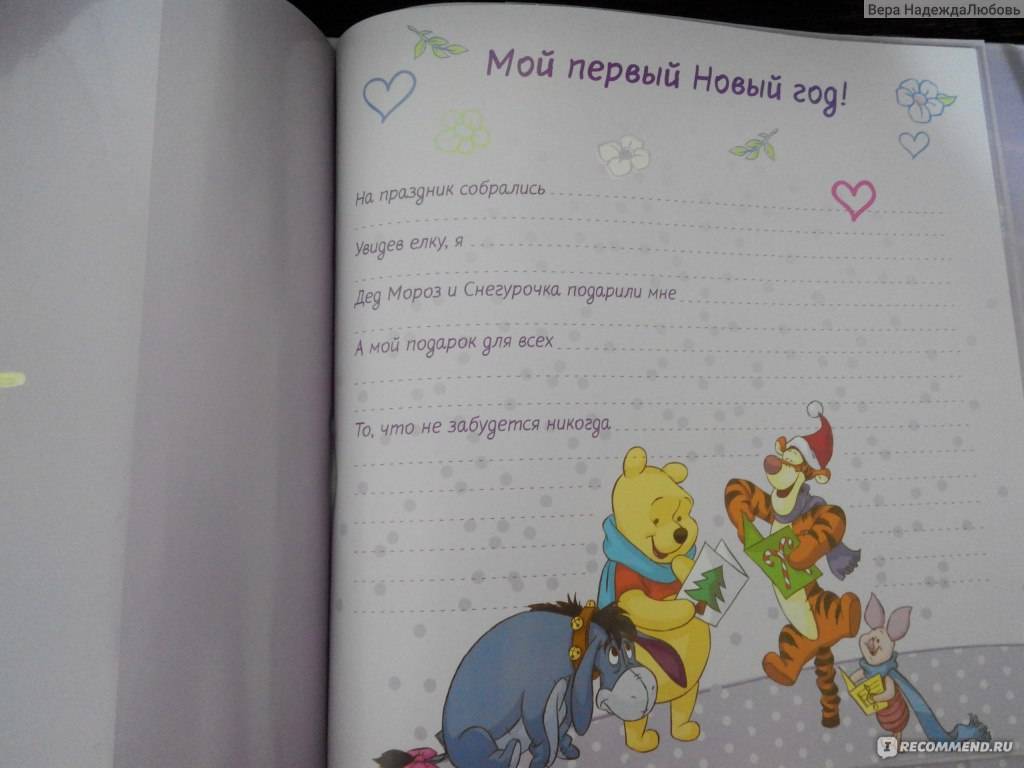 Вера НадеждаЛюбовь
Мой первый Новый год!
На праздник собрались
Увидев елку, я
Дед Мороз и Снегурочка подарили мне
А мой подарок для всех
То, что не забудется никогда
IRECOMMEND.RU